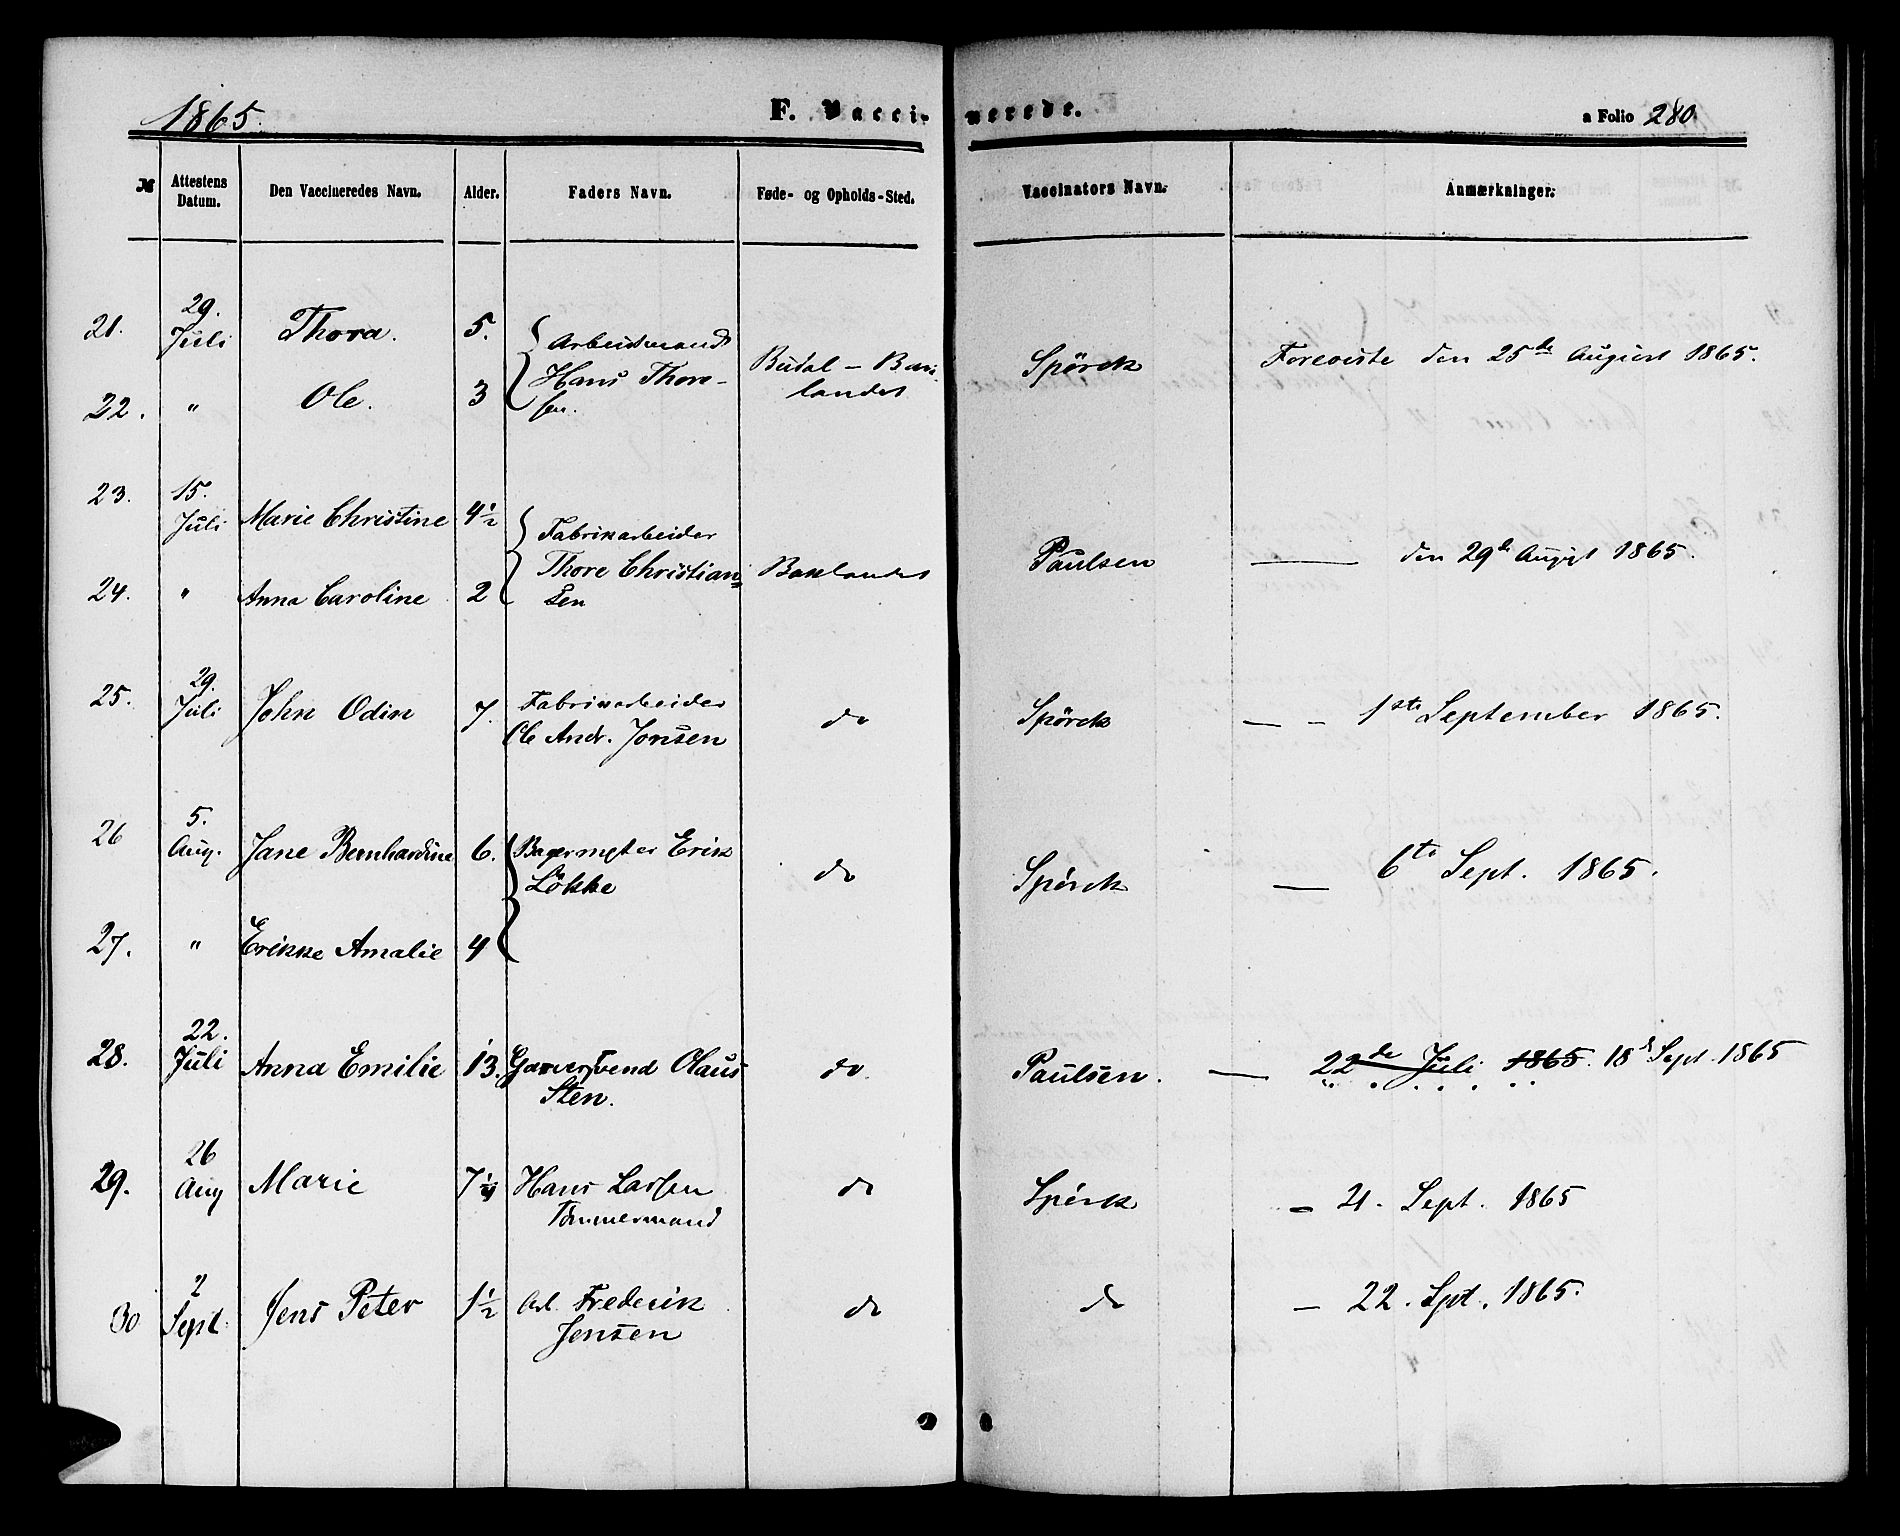 1865.
F. Vaccinerede.
a Folio 280.
№ Attestens Datum. Den Vaccineredes Navn. Alder. Faders Navn. Føde- og Opholds-Sted. Vaccinators Navn. Anmærkninger.
21. 29. Juli Thora. 5. Arbeidsmand
Hans Thore-
sen. Budal – Bak-
landet Spörck Foreviste den 25de August 1865.
22. " Ole. 3
23. 15. Juli Marie Christine 4½ Fabrikarbeider
Thore Christian=
sen Baklandet Paulsen — den 29de August 1865.
24. " Anna Caroline 2
25. 29. Juli John Odin 7. Fabrikarbeider
Ole Andr. Jonsen do Spörck — – 1ste September 1865.
26 5. Aug. Jane Bernhardine 6. Bagermester Erik
Lökke do Spörck — 6te Sept. 1865.
27. " Erikke Amalie 4
28. 22. Juli Anna Emilie 13. Garversvend Olaus
Sten. do. Paulsen. — 22de Juli 1865. 18d Sept. 1865
29. 26 Aug Marie 7¼ Hans Larsen
Tömmermand do Spörck – 21. Sept. 1865
30 2 Sept. Jens Peter 1½ Frederik
Jensen do do – 22. Spt. 1865.